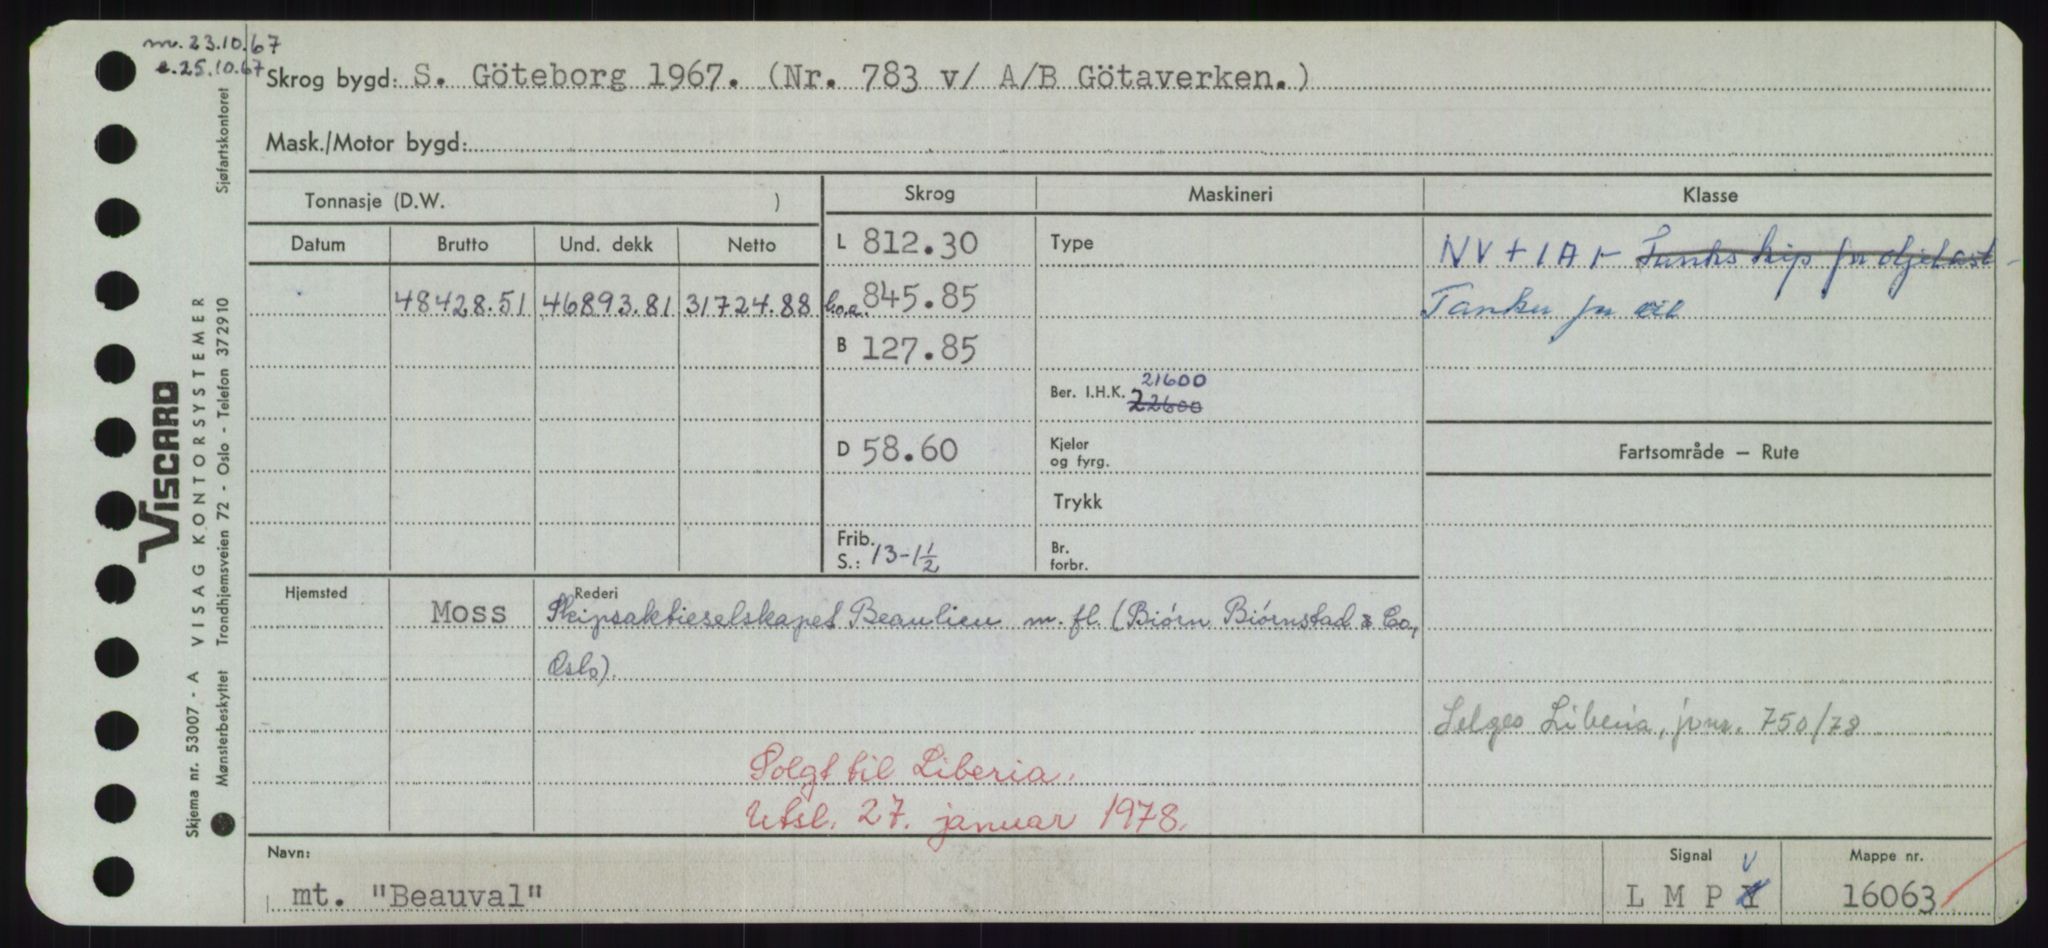 m. 23.10.67
e. 25.10.67
Skrog bygd: S. Göteborg 1967. (Nr. 783 v/ A/B Götaverken.)
Mask./Motor bygd:
Tonnasje (D.W. )
Skrog
Maskineri
Klasse
Datum
Brutto
Und. dekk
Netto
L 812.30
Type
NV + 1A1 - Tankskip for oljelast -
48428.51
46893.81
31724.88
l.o.a. 845.85
Tanker for oil
B 127.85
Ber. I.H.K.
21600
22600
D 58.60
Kjeler
og fyrg.
Fartsområde — Rute
Trykk
Frib.
S.: 13-1½
Br.
forbr.
Hjemsted
Rederi
Moss
Skipsaktieselskapet Beaulieu m. fl. (Biørn Biørnstad & Co,
Oslo).
Selges Liberia, jrnr. 750/78
Solgt til Liberia.
Utsl. 27. januar 1978.
Navn:
mt. "Beauval"
Signal
V
L M P Y
Mappe nr.
16063
VISCARD
Skjema nr. 53007 - A VISAG KONTORSYSTEMER
Mønsterbeskyttet Trondhjemsveien 72 - Oslo - Telefon 372910 Sjøfartskontoret